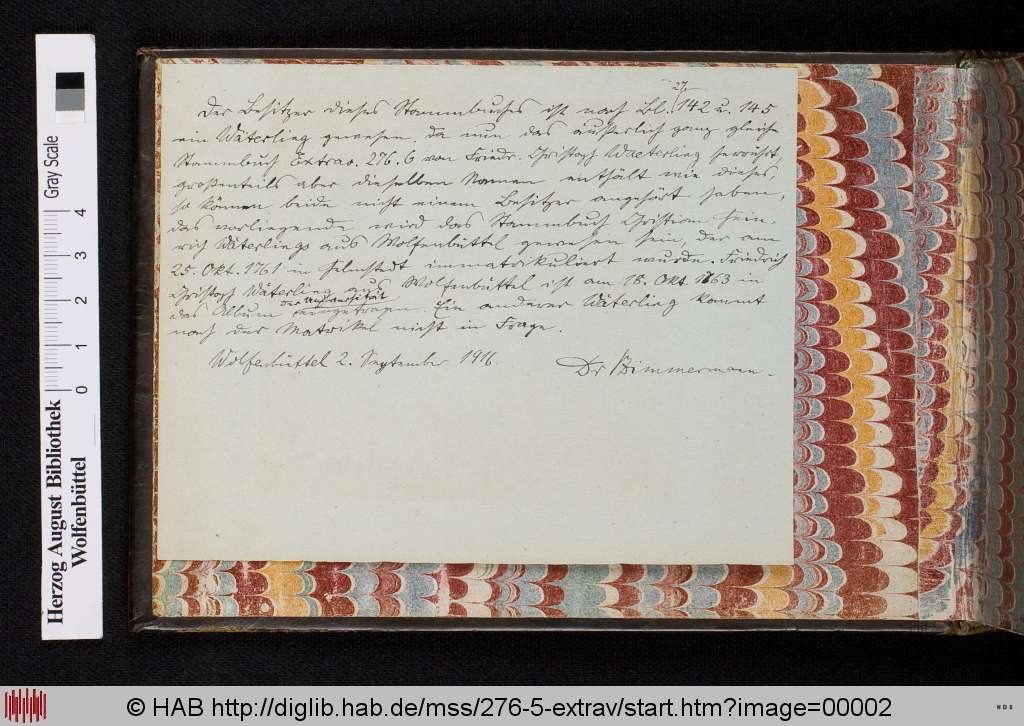 Der Besitzer dieses Stammbuches ist nach Bl. 27, 142 u. 145
ein Wäterling gewesen. Da nun das äußerlich ganz gleiche
Stammbuch Extrav. 276.6 von Friedr. Christoph Waeterling herrührt,
großenteils aber dieselben Namen enthält wie dieses,
so können beide nicht einem Besitzer angehört haben,
das vorliegende wird das Stammbuch Christian Hein-
rich Wäterlings aus Wolfenbüttel gewesen sein, der am
25. Okt. 1761 in Helmstedt immatrikuliert wurde. Friedrich
Christoph Wäterling aus Wolfenbüttel ist am 18. Okt. 1763 in
das Album der Universität eingetragen. Ein anderer Wäterling kommt
nach der Matrikel nicht in Frage.
Wolfenbüttel 2. September 1916. Dr Zimmermann.
Herzog August Bibliothek
Wolfenbüttel
0 1 2 3 4
Gray Scale
© HAB http://diglib.hab.de/mss/276-5-extrav/start.htm?image=00002
WDB